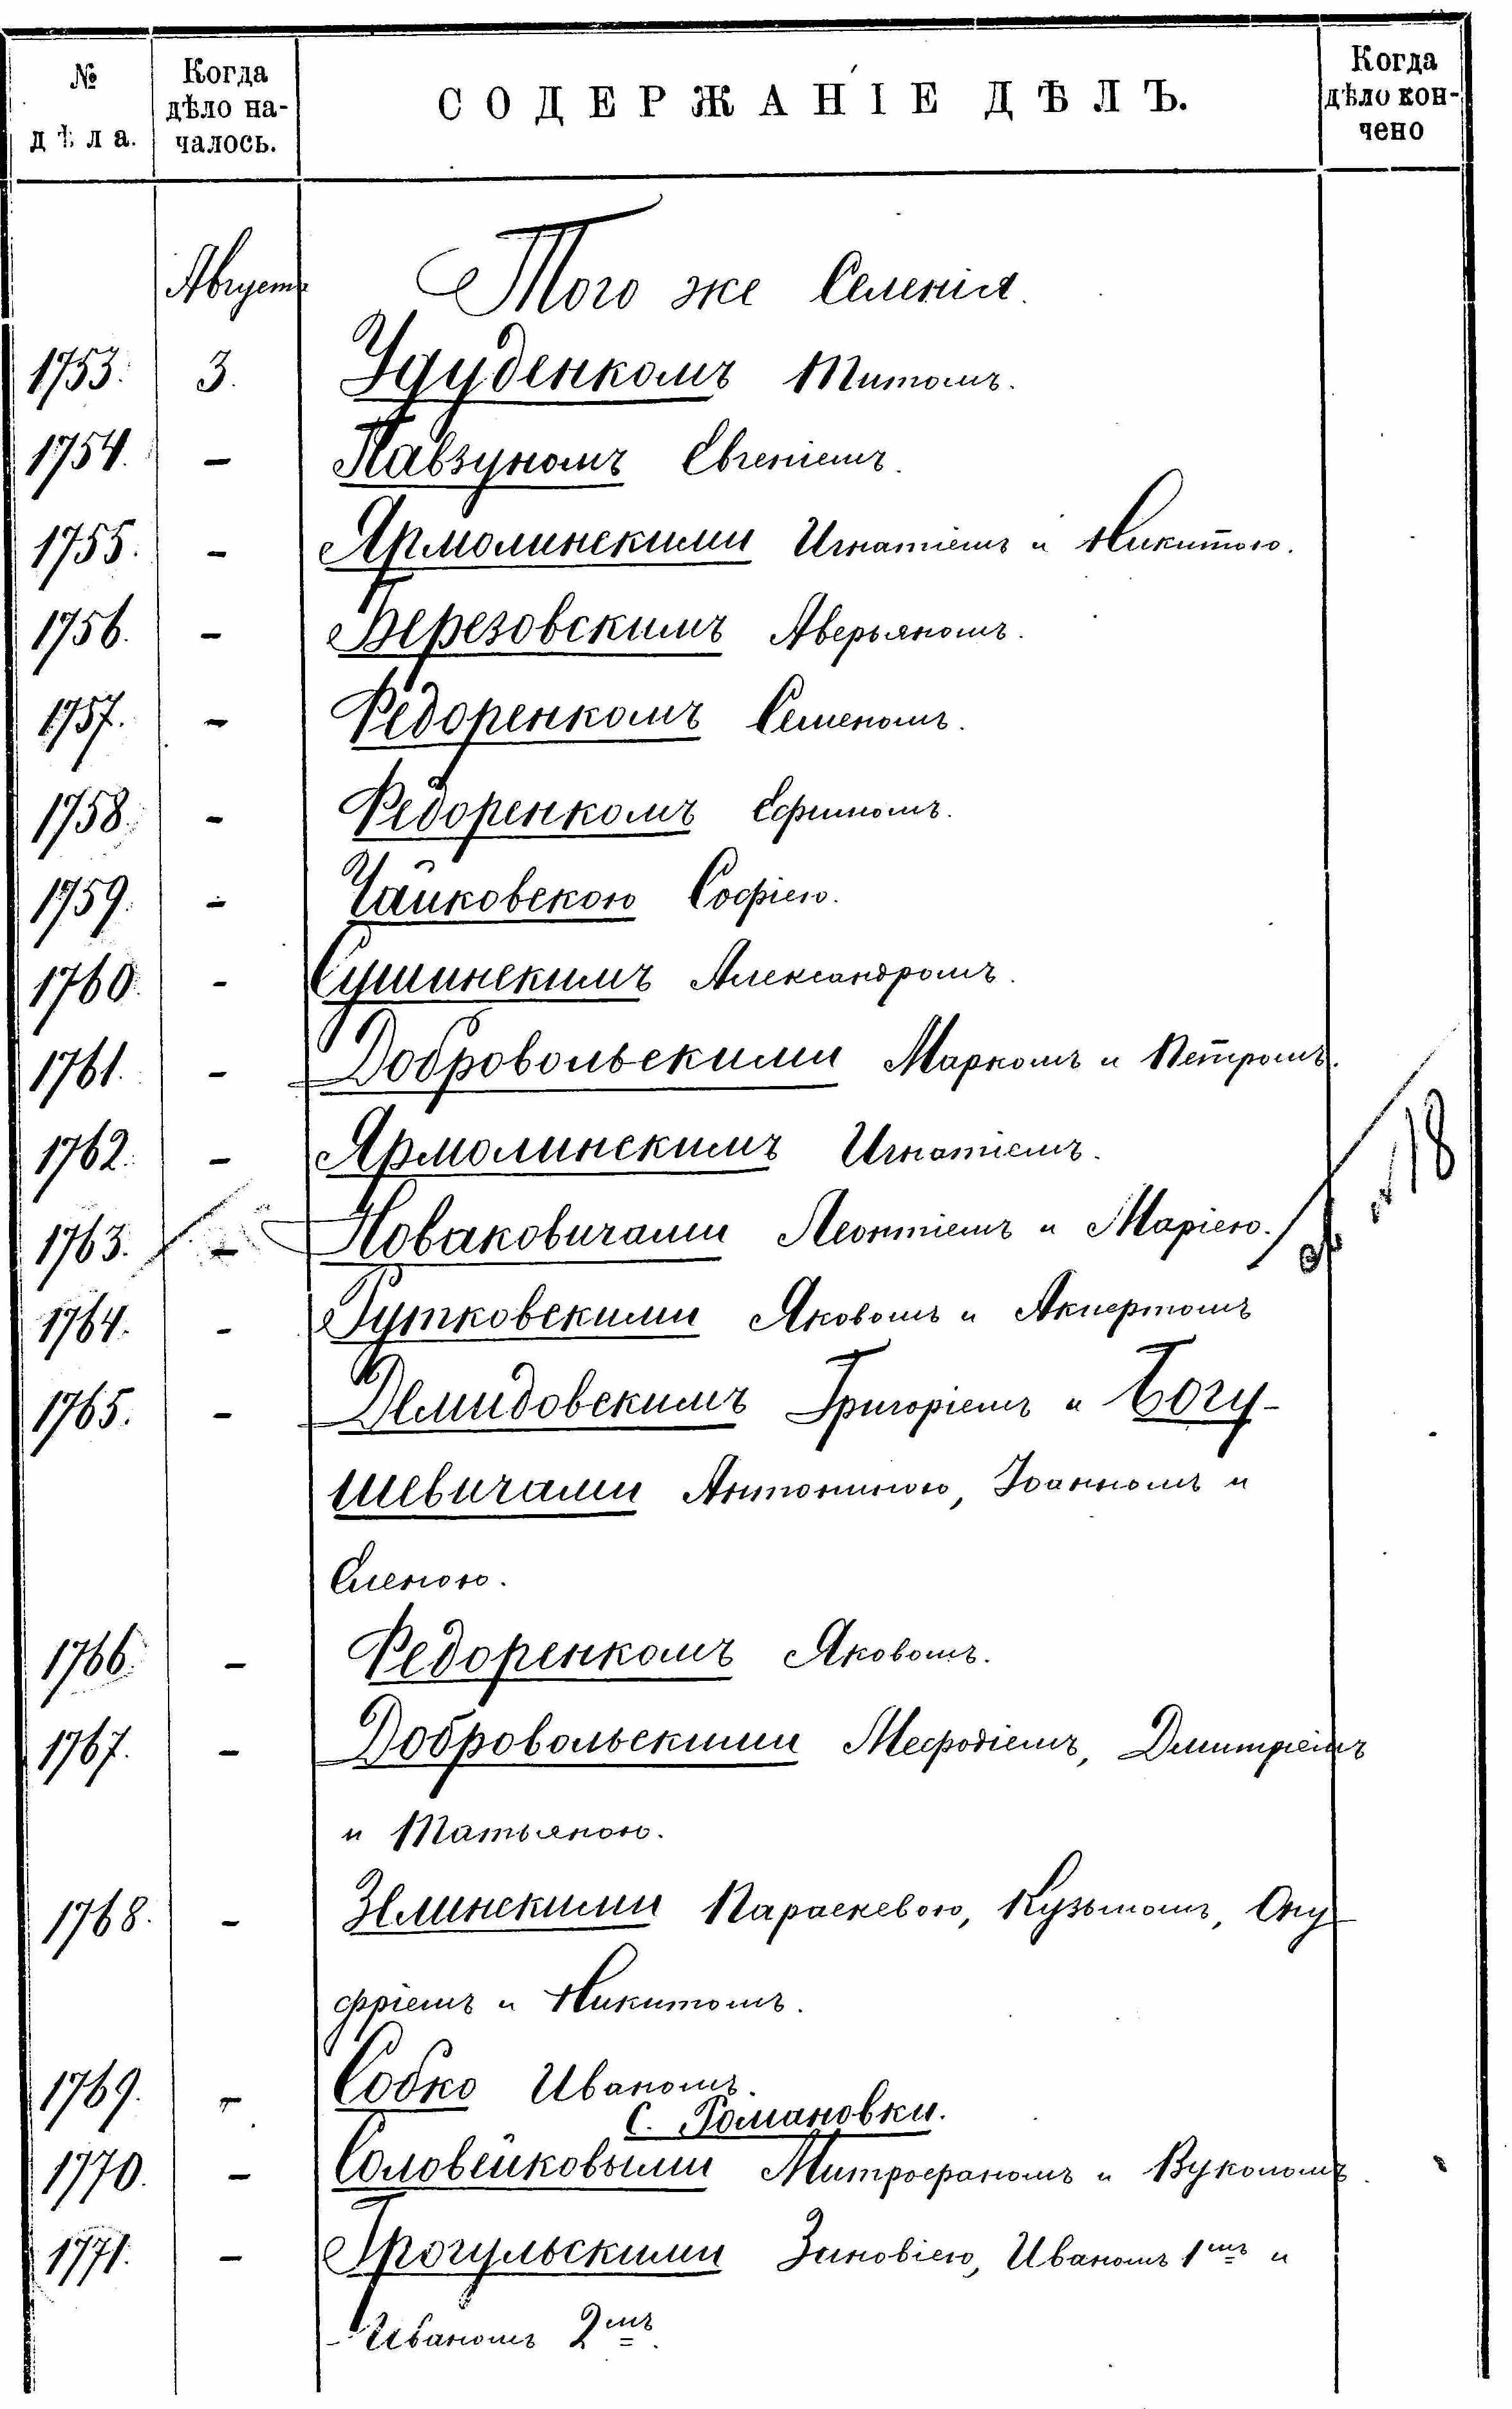 № дѣла.
Когда дѣло на-
чалось.
СОДЕРЖАНІЕ ДѢЛЪ.
Когда дѣло кон-
чено
Августъ Того же Селенія.
1753. 3. Удуденкомъ Титомъ.
1754. - Павзуномъ Евгеніемъ.
1755. - Ярмолинскими Игнатіемъ и Никитою.
1756. - Березовскимъ Аверьяномъ.
1757. - Федоренкомъ Семеномъ.
1758. - Федоренкомъ Ефимомъ.
1759. - Чайковскою Софіею.
1760. - Сушинскимъ Александромъ.
1761. - Добровольскими Маркомъ и Петромъ.
1762. - Ярмолинскимъ Игнатіемъ.
1763. - Новаковичами Леонтіемъ и Маріею.
18
1764. - Рутковскими Яковомъ и
1765. - Демидовскимъ Григоріемъ и Богу-
шевичами Антониною, Іоанномъ и
Еленою.
1766. - Федоренкомъ Яковомъ.
1767. - Добровольскими Мефодіемъ, Дмитріемъ
и Татьяною.
1768. - Зелинскими Параскевою, Кузьмомъ, Ону-
фріемъ и Никитомъ.
1769. - Собко Иваномъ.
С. Романовки.
1770. - Соловейковыми Митрофаномъ и Вуколомъ.
1771. - Трогульскими Зиновіею, Иваномъ 1мъ и
Иваномъ 2мъ.